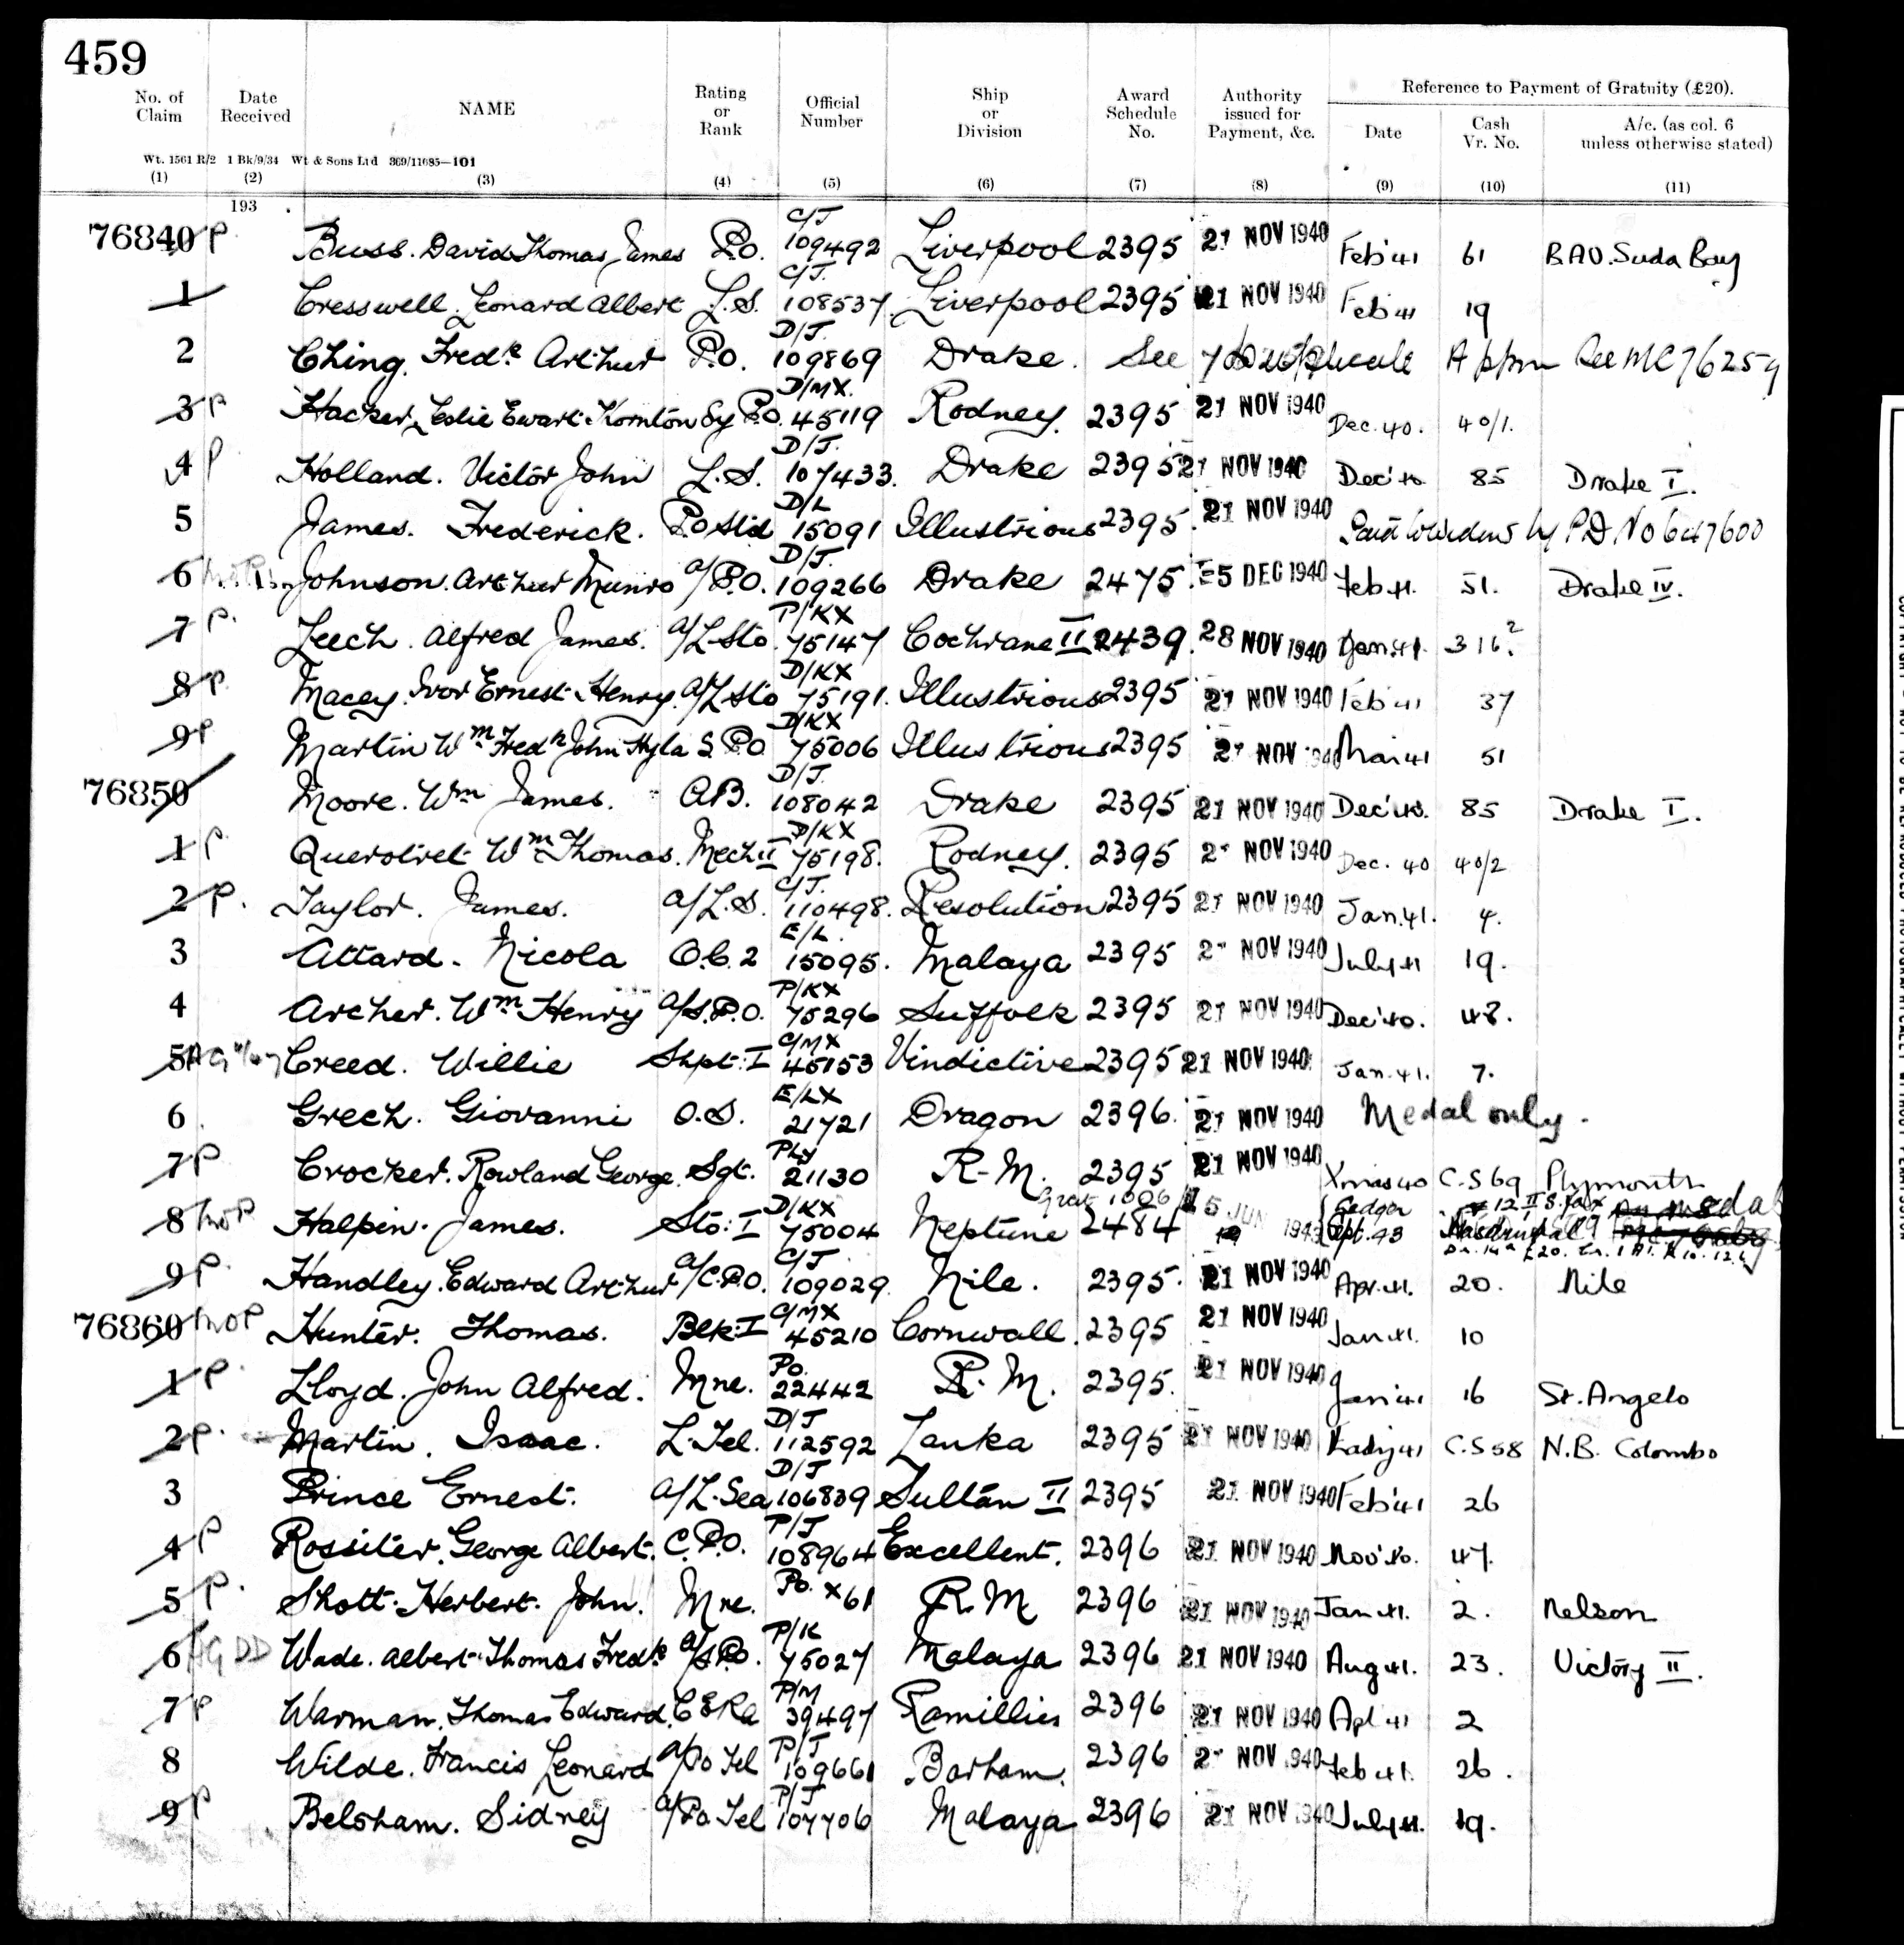 459
No. of Claim Date Received NAME Rating or Rank Official Number Ship or Division Award Schedule No. Authority issued for Payment, &c. Reference to Payment of Gratuity (£20).
Date Cash Vr. No. A/c. (as col. 6 unless otherwise stated)
Wt. 1561 R/2 1 Bk/9/34 Wt & Sons Ltd 369/11085—101
(1) (2) (3) (4) (5) (6) (7) (8) (9) (10) (11)
193
76840 P Buss. David Thomas James P.O. C/J 109492 Liverpool 2395 21 NOV 1940 Feb'41 61 B.A.O. Suda Bay
1 Cresswell. Leonard Albert L.S. C/J. 108537. Liverpool 2395 21 NOV 1940 Feb'41 19
2 Ching. Fredk Arthur P.O. D/J. 109869 Drake. See Duplicate Appn See MC 76259
3 P Hacker, Leslie Ewart Thornton Sy P.O. D/MX. 45119 Rodney 2395 21 NOV 1940 Dec. 40. 40/1.
4 P Holland. Victor John L.S. D/J. 107433. Drake 2395 21 NOV 1940 Dec'40 85 Drake I.
5 James. Frederick. P.O Std D/L 15091 Illustrious 2395. 21 NOV 1940 Paid to Widow by P.D No 647600
6 Johnson. Arthur Munro a/P.O. D/J. 109266 Drake 2475. -5 DEC 1940 Feb.41. 51. Drake IV.
7 P. Leech. Alfred James. a/L.Sto P/KX 75147 Cochrane II 2439. 28 NOV 1940 Jan.41. 316²
8 P. Macey. Ivor Ernest Henry. a/L Sto D/KX 75191. Illustrious 2395 21 NOV 1940 Feb'41 37
9 P Martin Wm Fredk John Hyla S.P.O D/KX 75006 Illustrious 2395 21 NOV 1940 Mar 41 51
76850 Moore. Wm James. A.B. D/J. 108042 Drake 2395 21 NOV 1940 Dec'40. 85 Drake I.
1 P Querotret Wm Thomas. Mech II D/KX 75198. Rodney. 2395 21 NOV 1940 Dec. 40 40/2
2 P. Taylor. James. a/L.S. C/J. 110498. Resolution 2395 21 NOV 1940 Jan.41. 4.
3 Attard. Nicola O.C.2 E/L. 15095. Malaya 2395 21 NOV 1940 July 41 19.
4 Archer. Wm Henry a/S.P.O. P/KX 75296 Suffolk 2395 21 NOV 1940 Dec'40. 48.
5 Creed. Willie Shpt: I C/MX 45153 Vindictive 2395 21 NOV 1940 Jan.41. 7.
6. Grech. Giovanni O.S. E/LX 21721 Dragon 2396. 21 NOV 1940 Medal only.
7 P Crocker. Rowland George. Sgt. Ply 21130 R.M. 2395 21 NOV 1940 Xmas 40 C.S 69 Plymouth
8 Halpin. James. Sto: I D/KX 75004 Neptune 2484 15 JUN 1943 Sept. 43
9 P. Handley. Edward Arthur a/C.P.O. C/J 109029 Nile. 2395. 21 NOV 1940 Apr.41. 20. Nile
76860 Hunter. Thomas. Blk: I C/MX 45210 Cornwall. 2395 21 NOV 1940 Jan 41. 10
1 P. Lloyd. John Alfred. Mne. Po. 22442 R.M. 2395. 21 NOV 1940 Jan'41 16 St. Angelo
2 P. Martin. Isaac. L.Tel. D/J 112592 Lanka 2395 21 NOV 1940 41 C.S 58 N.B. Colombo
3 Prince Ernest. a/L.Sea D/J 106839 Sultan II 2395 21 NOV 1940 Feb'41 26
4 P Rossiter. George Albert. C.P.O. P/J 108964 Excellent. 2396 21 NOV 1940 Nov'40. 47.
5 P. Shott. Herbert. John. Mne. Po. X61 R.M 2396 21 NOV 1940 Jan 41. 2. Nelson
6 Wade. Albert Thomas Fredk a/S.P.O. P/K 75027 Malaya 2396 21 NOV 1940 Aug 41. 23. Victory II.
7 P Warman. Thomas Edward. C E R a P/M 39497 Ramillies 2396 21 NOV 1940 Apl 41 2
8 Wilde. Francis Leonard a/P.O Tel P/J 109661 Barham. 2396 21 NOV 1940 Feb 41. 26.
9 P Belsham. Sidney a/P.O. Tel P/J 107706 Malaya 2396 21 NOV 1940 July 41. 19.